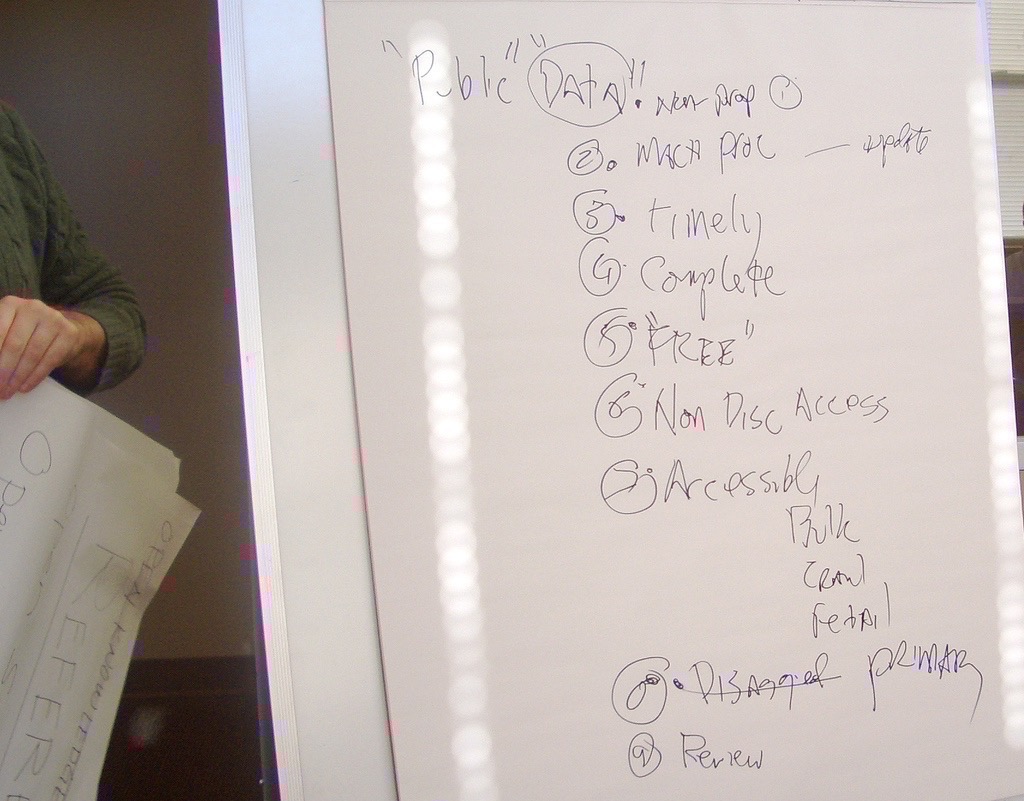 "Public" "DATA" • Non prop ①
② • MACH PROC — update
③ • timely
④ • Complete
⑤ • "FREE"
⑥ • Non Disc Access
⑦ • Accessibly
Bulk
CRAWl
retAil
⑧ • DISAggied PRIMARy
⑨ Review
OPEN KNOWLEDGE
REFER